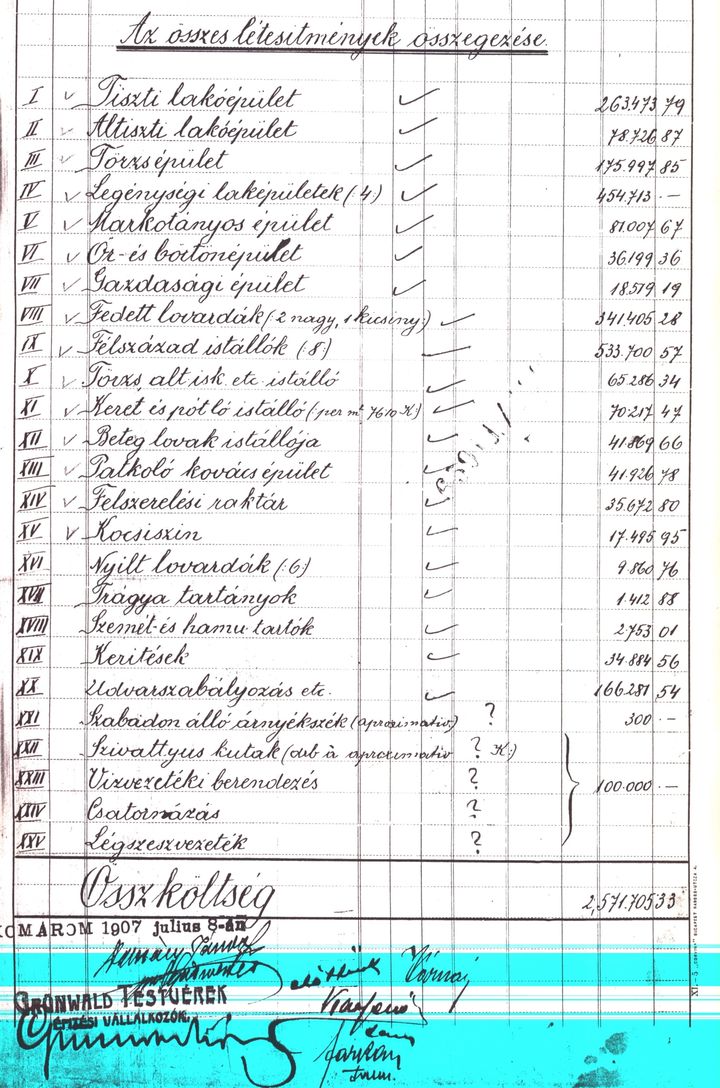 Az összes létesitmények összegezése.
I Tiszti lakóépület 263.473 79
II Altiszti lakóépület 78.726 87
III Törzsépület 175.997 85
IV Legénységi laképületek (:4) 454.713 .—
V Markotányos épület 81.007 67
VI Őr- és börtönépület 36.199 36
VII Gazdasági épület 18.579 19
VIII Fedett lovardák (: 2 nagy, 1 kicsiny :) 341.405 28
IX Félszázad istállók (:8:) 533.700 57
X Törzs, alt. isk. etc. istálló 65.286 34
XI Keret és pótló istálló (: per mt. 7610 K:) 70.217 47
XII Beteg lovak istállója 41.869 66
XIII Patkoló kovácsépület 41.926 78
XIV Felszerelési raktár 35.672 80
XV Kocsiszin 17.495 95
XVI Nyilt lovardák (:6) 9.860 76
XVII Trágya tartányok 1.412 88
XVIII Szemét- és hamu tartók 2.753 01
XIX Keritések 34.884 56
XX Udvarszabályozás etc. 166.281,54
XXI Szabadon álló árnyékszék (aproximativ) ? 300 .—
XXII Szivattyus kutak (drb à aproximativ ? K:)
XXIII Vizvezetéki berendezés ? 100.000 .—
XXIV Csatornázás ?
XXV Légszeszvezeték ?
Összköltség 2,571.705 33
KOMÁROM 1907 julius 8-án
előttünk
GRÜNWALD TESTVÉREK
ÉPITÉSI VÁLLALKOZÓK.